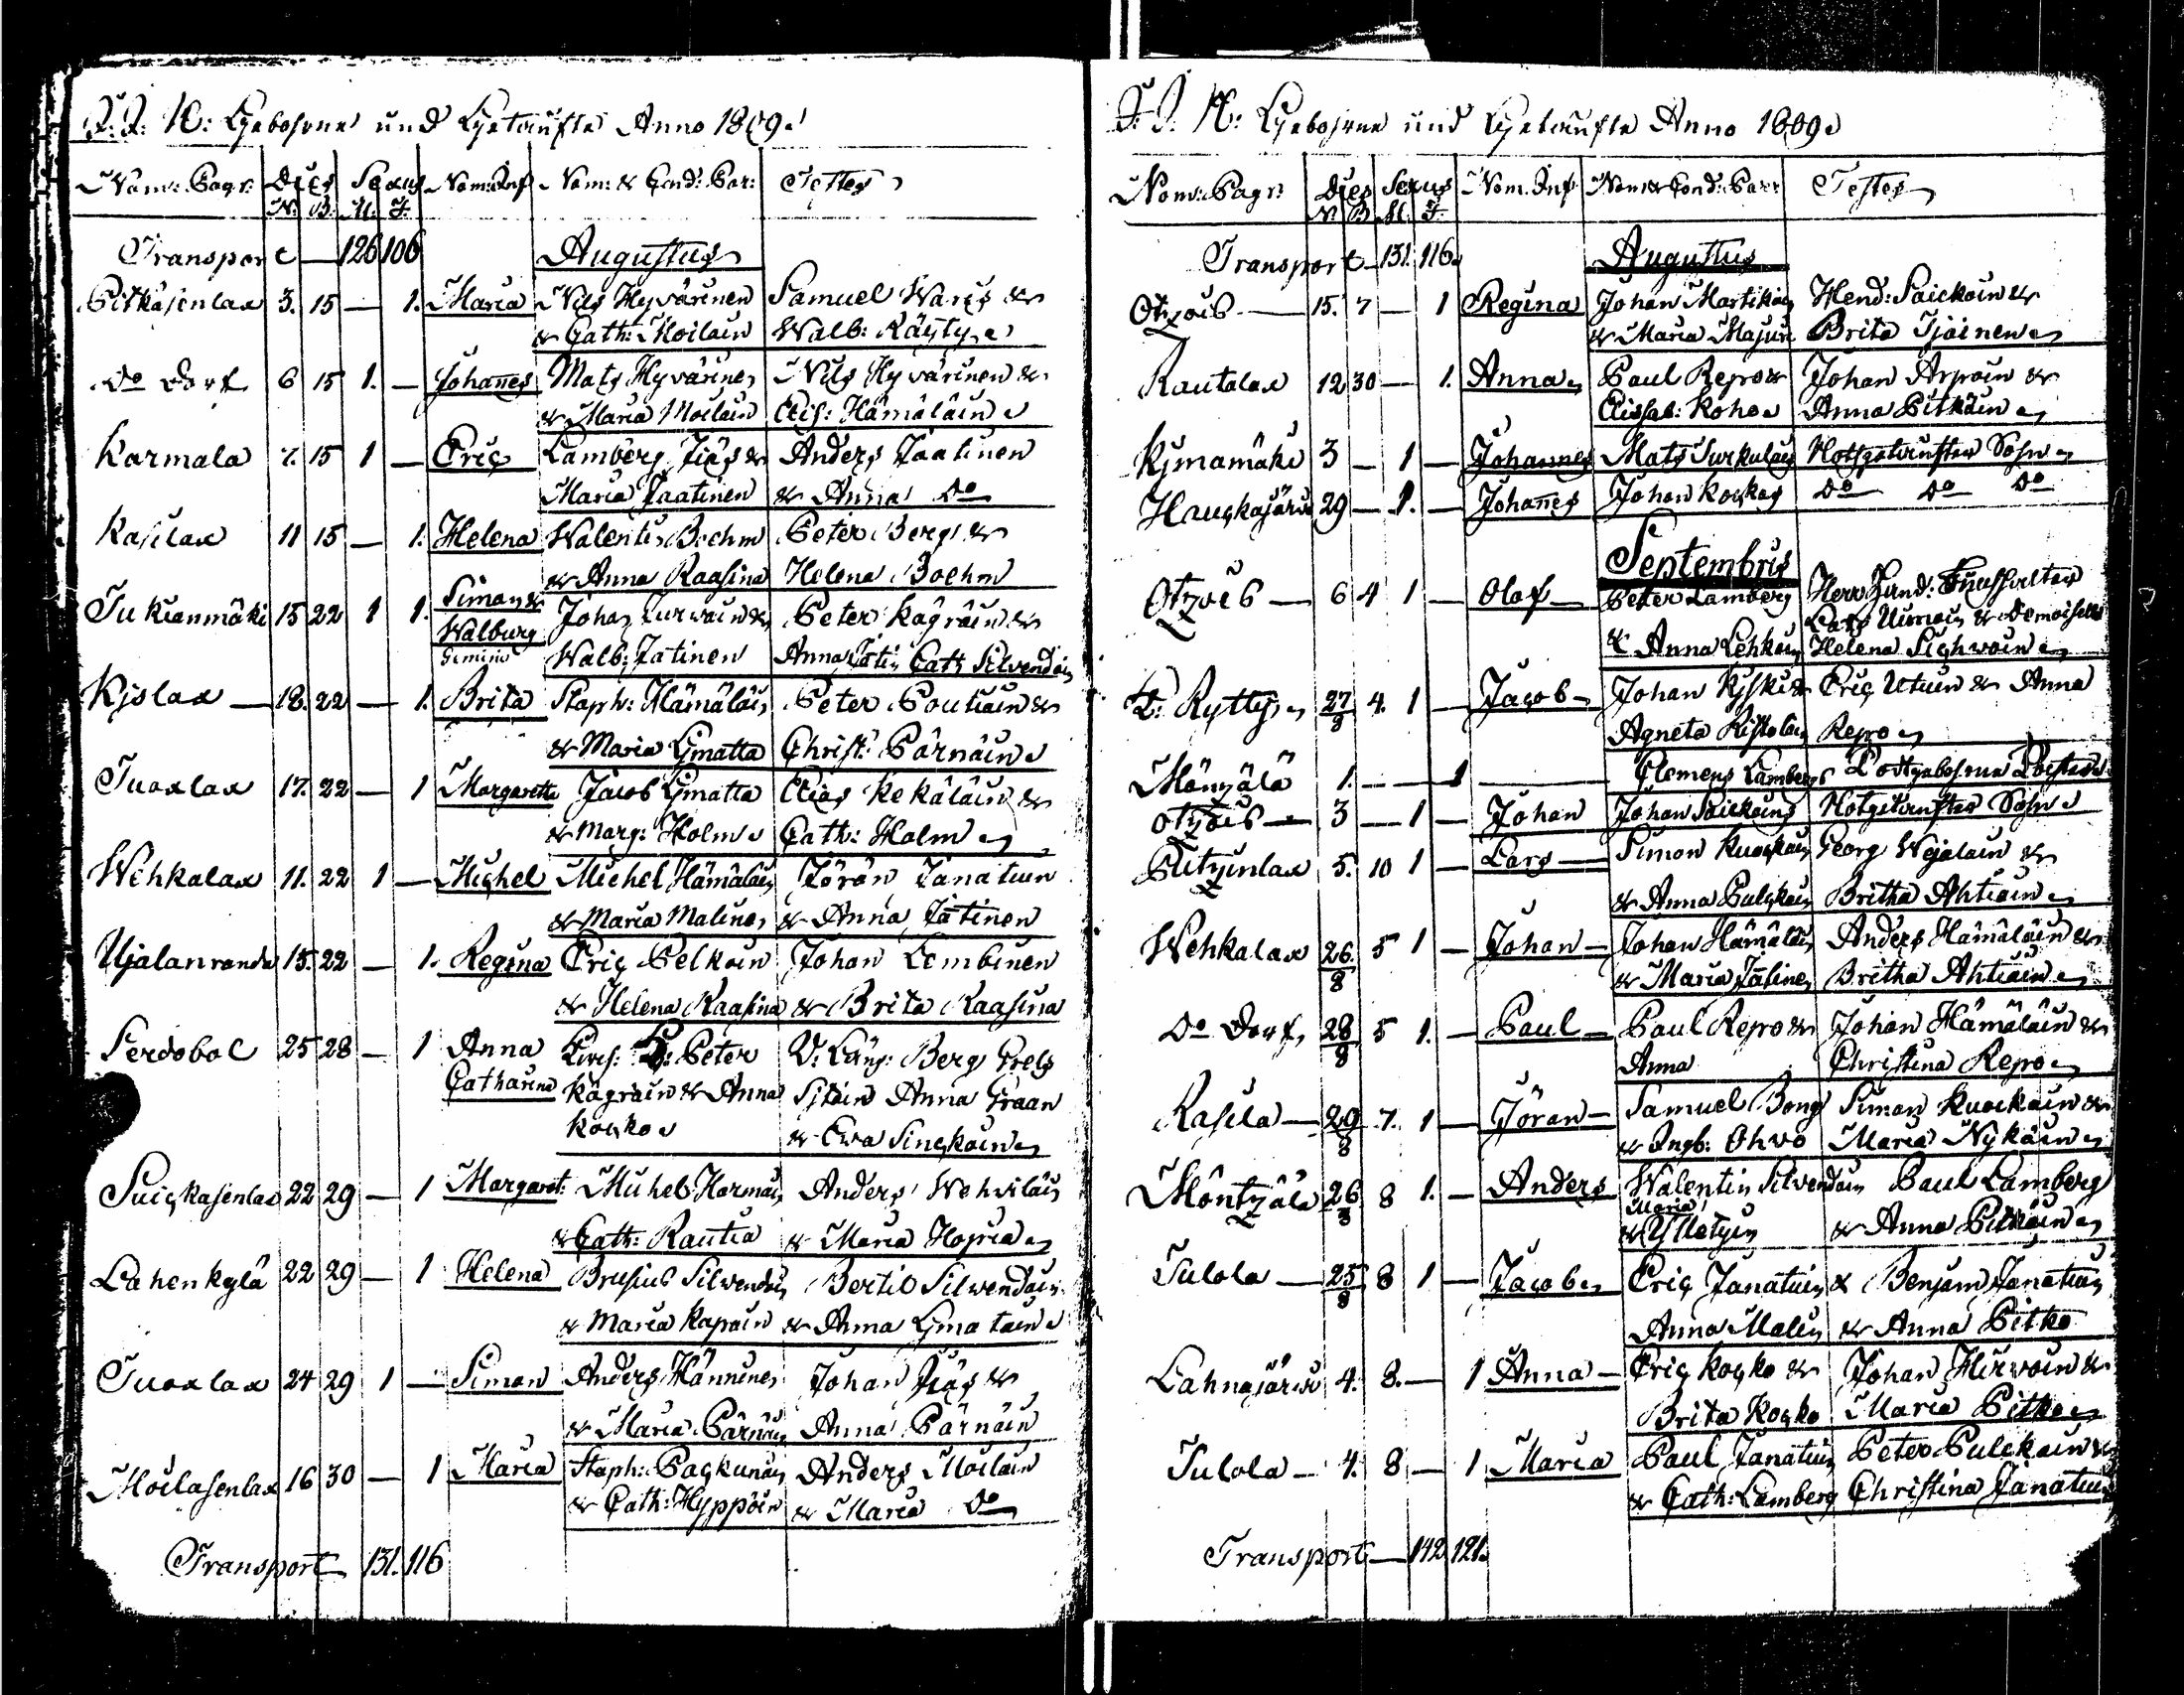 I. J. N: Gebohrne und Getaufte Anno 1809.
Nom: Pagi: Dies Sexus Nom: Inf. Nom: & Cond: Par: Testes
N. B. M. F.
Transport — 126 106 Augustus
Pitkäsenlax 3. 15 — 1. Maria Nils Hyvärinen Samuel Wares &
& Cath: Moilain Walb: Räyty
do Dorf 6 15 1. — Johannes Mats Hyvärinen Nils Hyvärinen &
& Maria Moilain Elis: Hämäläin
Karmala 7. 15 1 — Eric Lamberg Jiäs & Anders Jaatinen
Maria Jaatinen & Anna do
Rasilax 11 15 — 1. Helena Walentin Boehm Peter Berg &
& Anna Raasina Helena Boehm
Tukianmäki 15 22 1 1. Simon & Johan Peter Kägräin &
Walburg Walb: Jatinen Anna Jätin Cath Silvendäin
Gemini
Kjslax — 18. 22 — 1. Brita Staph: Hämäläin Peter Poutiain &
& Maria Gmatta Christ: Pärnäin
Tuoxlax 17. 22 — 1 Margaretha Jacob Gmatta Elias Kekäläin &
& Marg: Holm Cath: Holm
Wehkalax 11. 22 1 — Michel Michel Hämäläin Jörän Janatuin
& Maria Malinen & Anna Jätinen
Ujalanranda 15. 22 — 1. Regina Eric Pelkoin Johan Lembinen
& Helena Raasina & Brita Raasina
Serdobol 25 28 — 1 Anna Kirch: Peter V: Läng: Berg Grels
Catharina Kägräin & Anna Sitoin Anna Graan
Kocko & Ewa Sinckoin
Puickasenlax 22 29 — 1 Margaret: Michel Hormain Anders Wehviläin
& Cath: Rautia & Maria Hopria
Lahenkylä 22 29 — 1 Helena Brusius Silvendäin Bertil Silvendäin
& Maria Kapain & Anna Gmatain
Tuoxlax 24 29 1 — Simon Anders Hänninen Johan Jiäs &
& Maria Pärnäin Anna Pärnäin
Moilasenlax 16 30 — 1 Maria Staph: Packunain Anders Moilain
& Cath: Hyppöin & Maria do
Transport 131. 116
I. J. N: Gebohrne und Getaufte Anno 1809
Nom: Pagi: Dies Sexus Nom. Inf Nom & Cond: Parr Testes
N B M. F.
Transport — 131. 116 Augustus
Otzois — 15. 7 — 1 Regina Johan Martikain Hend: Saickoin &
& Maria Majuri Brita Ijäinen
Rautalax 12 30 — 1. Anna Paul Repo & Johan Arpoin &
Elisab: Koho Anna Pitkäin
Kjmamäki 3 — 1 — Johannes Mats Surkulain Nothgetaufter Sohn
Hauckajärvi 29 — 1. — Johannes Johan Kockos do do do
Septembris
Otzois — 6 4 1 — Olof — Peter Lamberg Herr
& Anna Lehkoin Lars Uimoin & Demoiselle
Helena Sichwoin
L: Rytty 27/8 4. 1 — Jacob — Johan Kjski & Eric Utuin & Anna
Agneta Ristolain Repo
Mönzälä 1. — — 1 — Clemens Lamberg Todtgebohrne Tochter
Otzois — 3 — 1 — Johan Johan Saickoin Nothgetaufter Sohn
Pitzinlax 5. 10 1 — Lars — Simon Kuockain Georg Wejalain &
& Anna Pulckain Britha Ahtiain
Wehkalax 26/8 5 1 — Johan — Johan Hämäläin Anders Hämäläin &
& Maria Jätinen Britha Ahtiain
do Dorf 28/8 5 1. — Paul — Paul Repo & Johan Hämäläin &
Anna Christina Repo
Rasila — 29/8 7. 1 — Jöran — Samuel Bong Simon Kuockain &
& Ingb: Ohvo Maria Nykäin
Möntzälä 26/8 8 1. — Anders Walentin Silvendäin Paul Lamberg
Maria
& Anna Pitkäin
Tulola — 25/8 8 1 — Jacob Eric Janatuin & Benjam Janatuin
Anna Malin & Anna Pitko
Lahnajärvi 4. 8. — 1 Anna — Eric Kocko & Johan Hirvoin &
Brita Kocko Maria Pitko
Tulola — 4. 8 — 1 Maria Paul Janatuin Peter Pulckain &
& Cath: Lamberg Christina Janatuin
Transport — 142 121.